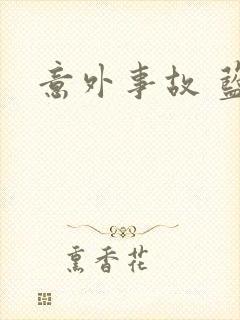 意外事故 藍
熏香花